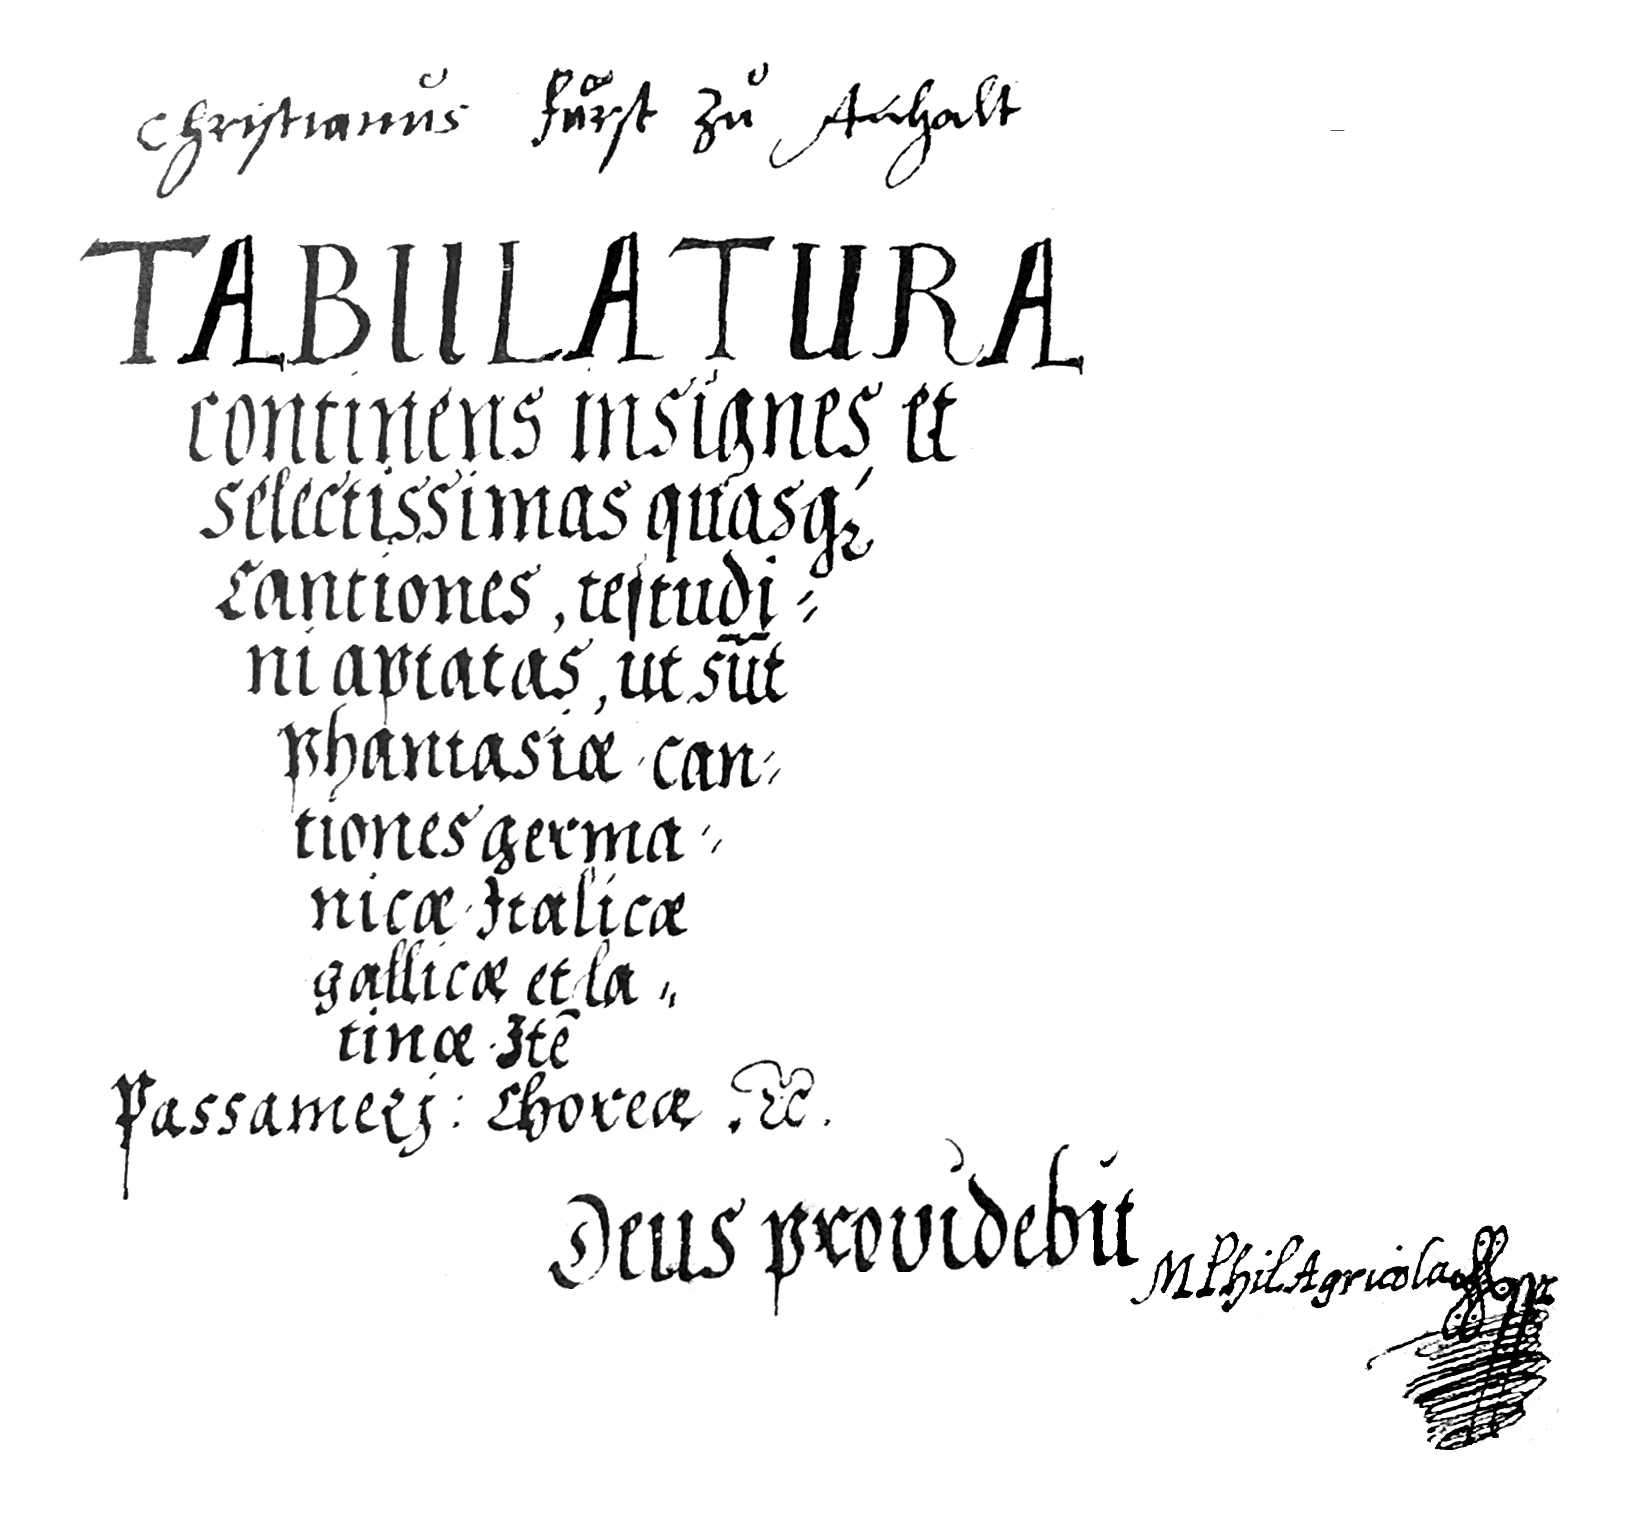 Christianus fürst zu Anhalt
TABULATURA
continens insignes et
selectissimas quasqꝫ
Cantiones, testudi⸗
ni aptatas, ut sūt
phantasiæ · can⸗
tiones germa⸗
nicæ · Italicæ
gallicæ et la⸗
tinæ · Itē
Passamezj: Choreæ .&c.
Deus providebit
M Phil Agricola